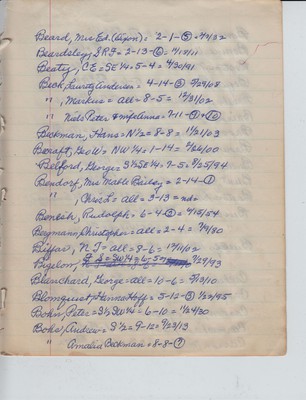 Beard, Mrs Ed. = 2-1-⑤ =
Beardsley, = 2-13-⑥ = 7/19/11
Beaty, C E = SE¼-5-4 = 4/30/91
Beck, Lauritz Andersen = 4-14-③ 5/29/08
" , Markus = all = 8-5 = 12/31/02
" Niels Peter & = 7-11-
Beckman, Hans = N½ = 8-8 = 1/21/03
Becraft, Geo W = NW¼ = 1-14 = 7/26/00
Bellford, George = S½SE¼ = 7-5 = 8/25/94
Bendorf, Mrs Mable = 2-14-①
" , Chris L = all = 3-13 = nd=
Benesh, Rudolph = 6-4-③ = 4/15/54
Bergmann, Christopher = all = 2-4 = 7/9/80
Biffar, N J = all = 8-6 = 12/11/02
Bigelow, 7/29/93
Blanchard, George = all = 10-6 = 5/13/10
Blomquist, Hanna Hoff = 5-12-③ 1/22/95
Bohn, Peter = S½SW¼ = 6-10 = 1/24/30
Bohs, Andrew = S½ = 9-12 = 9/23/13
" Amalia Beckman = 8-8-⑦